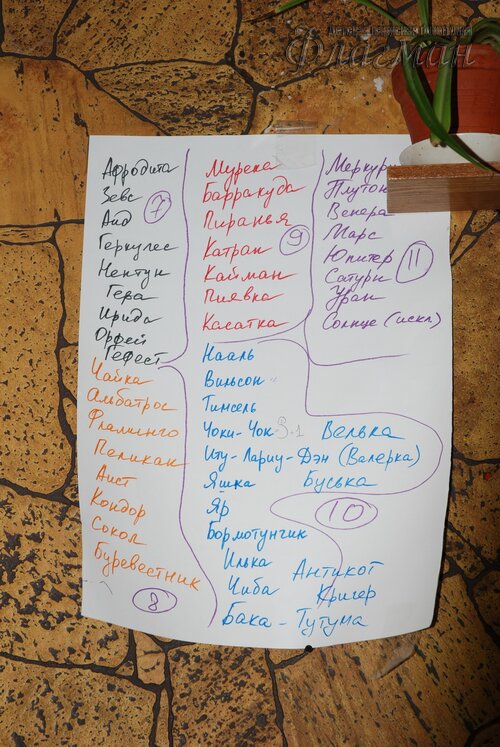 Флагман
Афродита
Зевс
Аид
Геркулес
Нептун
Гера
Ирида
Орфей
Гефест
7
Мурена
Барракуда
Пиранья
Катран
Кайман
Пиявка
Касатка
9
Меркур
Плутон
Венера
Марс
Юпитер
Сатурн
Уран
Солнце (искл)
11
Чайка
Альбатрос
Фламинго
Пеликан
Аист
Кондор
Сокол
Буревестник
8
Нааль
Вильсон
Тимсель
Чоки-Чок
Велька
Иту-Лариу-Дэн (Валерка)
Яшка
Буська
Яр
10
Бормотунчик
Илька
Антикот
Чиба
Кригер
Бака-Тутума